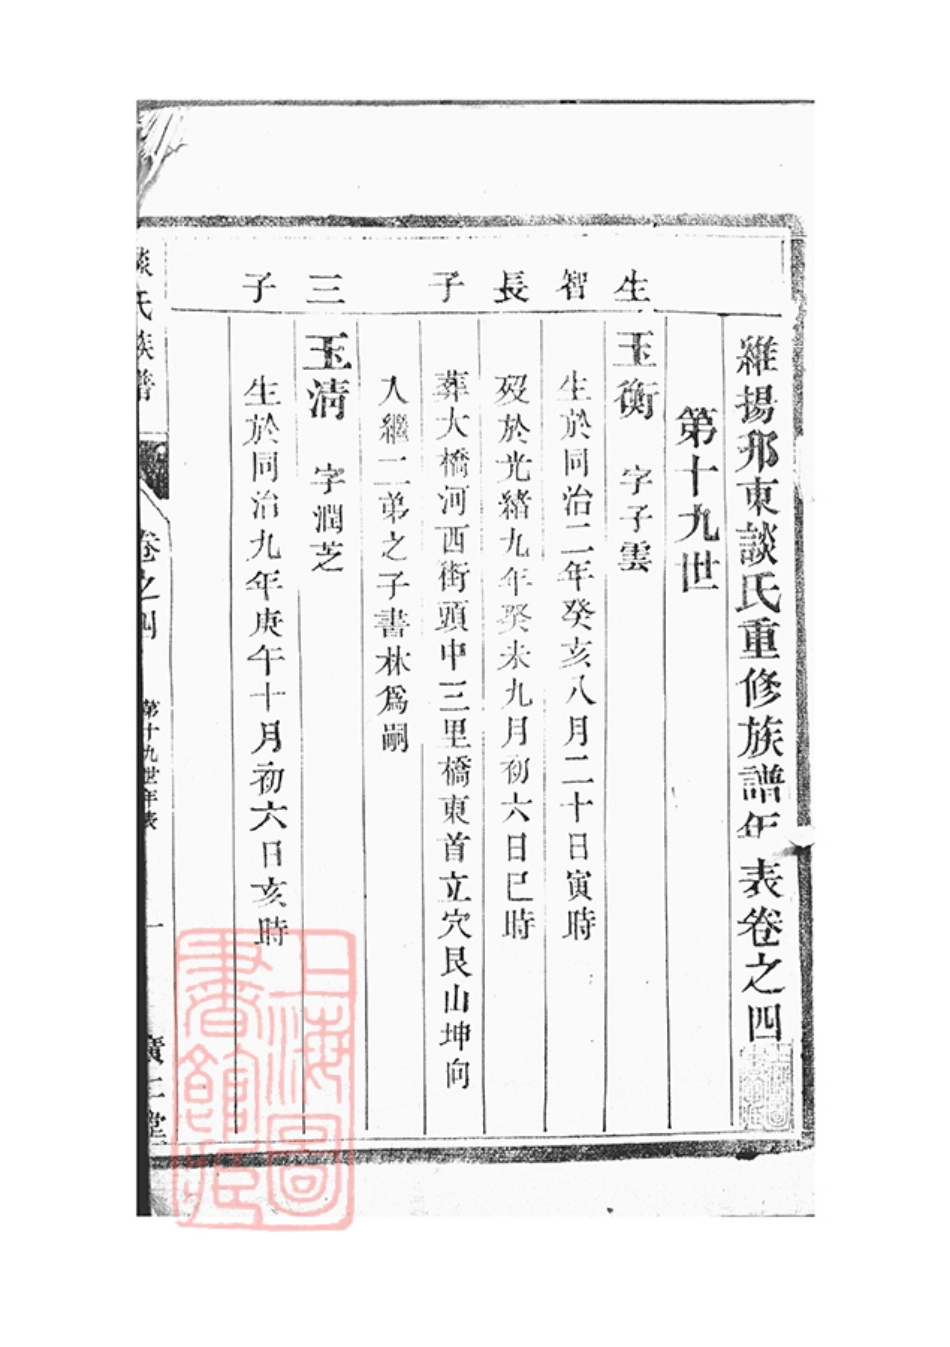 維揚邗東談氏重修族譜年表卷之四
第十九世
生 玉衡 字子雲
智 生於同治二年癸亥八月二十日寅時
長 歿於光緒九年癸未九月初六日巳時
子 葬大橋河西街頭中三里橋東首立穴艮山坤向
入繼二弟之子書林為嗣
三 玉清 字潤芝
子 生於同治九年庚午十月初六日亥時
談氏族譜 卷之四 第十九世年表 一 廣仁堂
上海圖書館藏